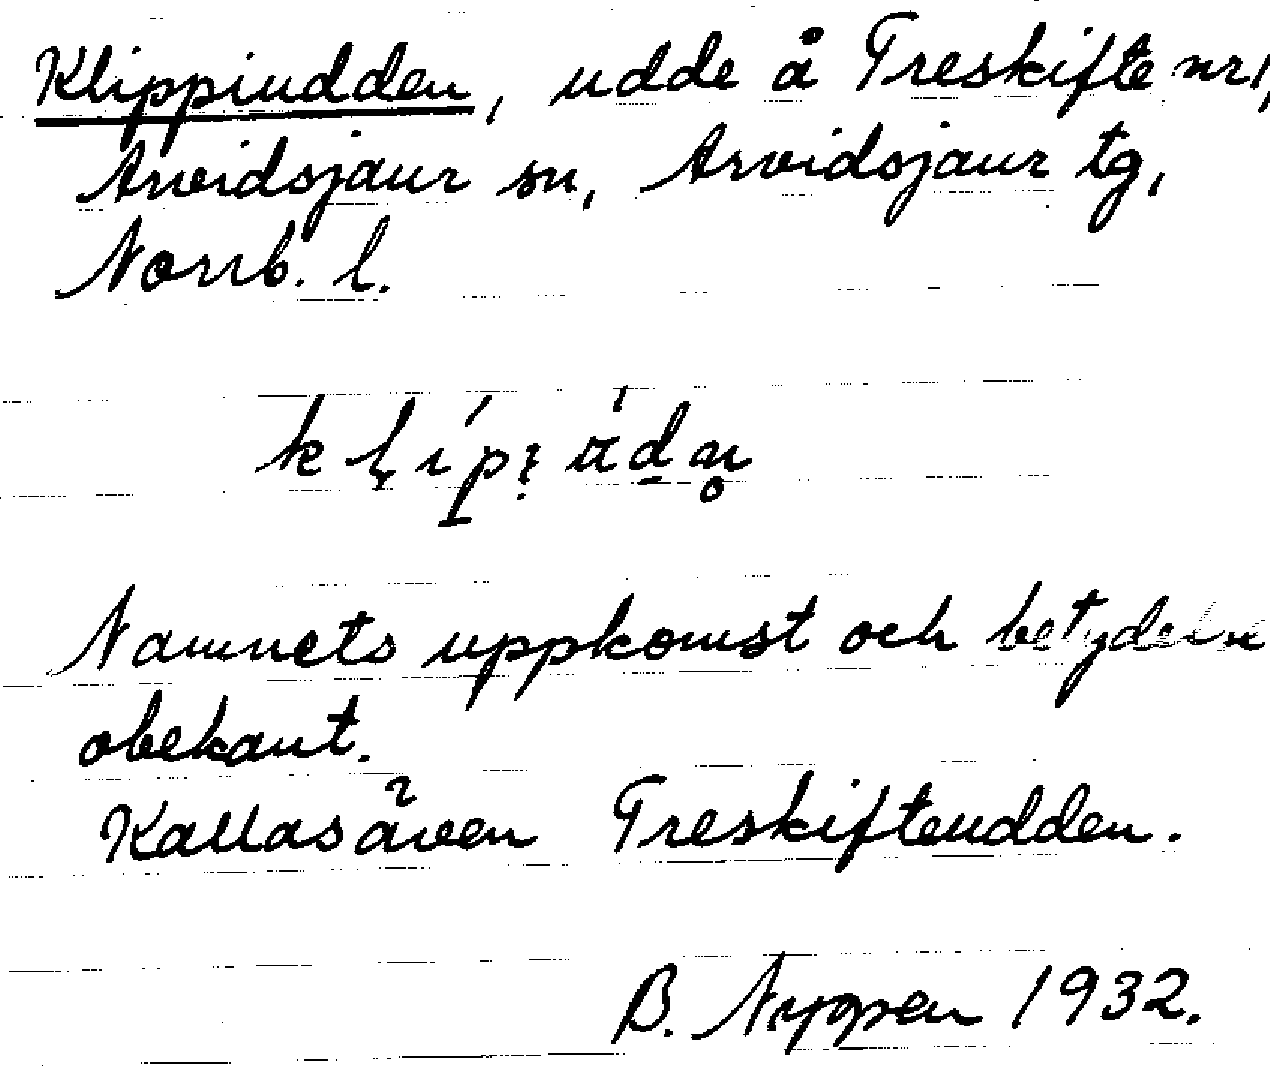 Klippiudden, udde å Treskifte nr 1,
Arvidsjaur sn, Arvidsjaur tg,
Norrb. l.
Namnets uppkomst och betydelse
obekant.
Kallas även Treskifteudden.
B. Nyppen 1932.